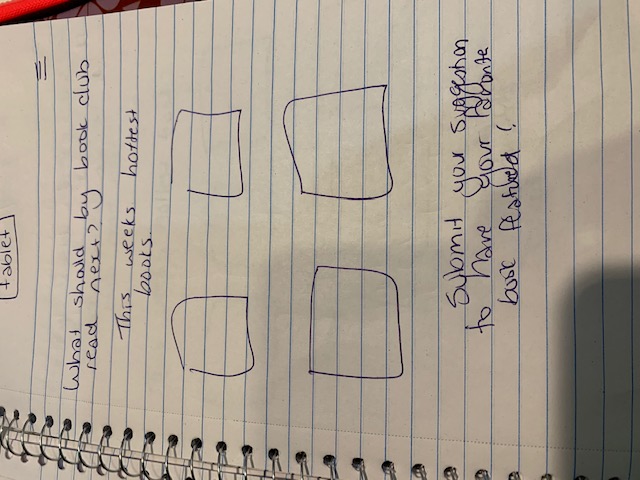 tablet
What should by book club
read next?
This weeks hottest
books.
Submit your suggestion
to have your favorite
book featured!